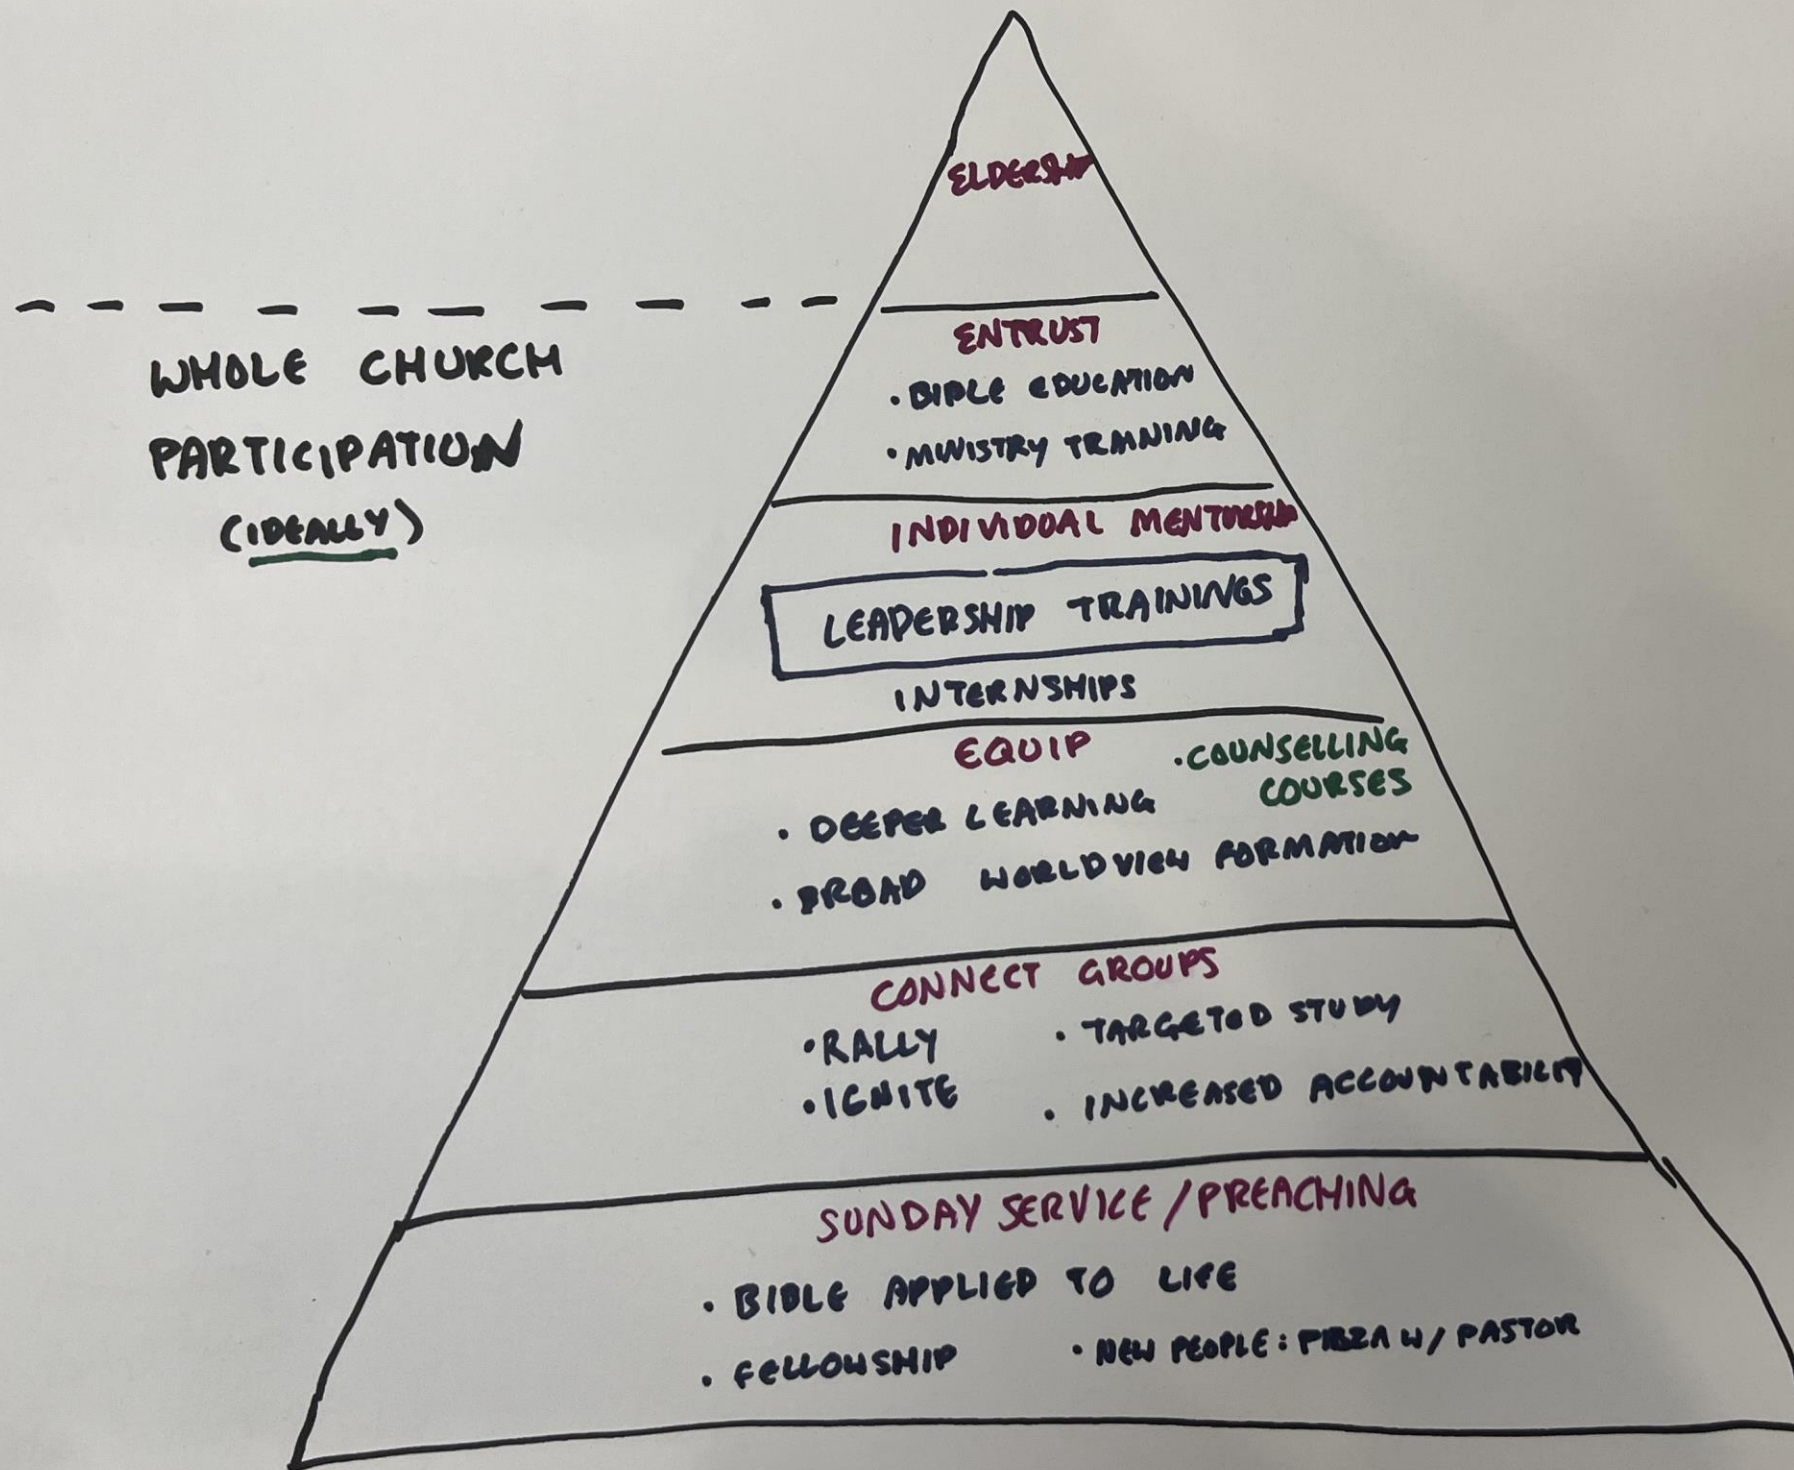 ELDERSHIP
WHOLE CHURCH
PARTICIPATION
(IDEALLY)
ENTRUST
• BIBLE EDUCATION
• MINISTRY TRAINING
INDIVIDUAL MENTORSHIP
LEADERSHIP TRAININGS
INTERNSHIPS
EQUIP
• COUNSELLING
COURSES
• DEEPER LEARNING
• BROAD WORLDVIEW FORMATION
CONNECT GROUPS
• RALLY
• TARGETED STUDY
• IGNITE
• INCREASED ACCOUNTABILITY
SUNDAY SERVICE / PREACHING
• BIBLE APPLIED TO LIFE
• FELLOWSHIP
• NEW PEOPLE: PIZZA W/ PASTOR